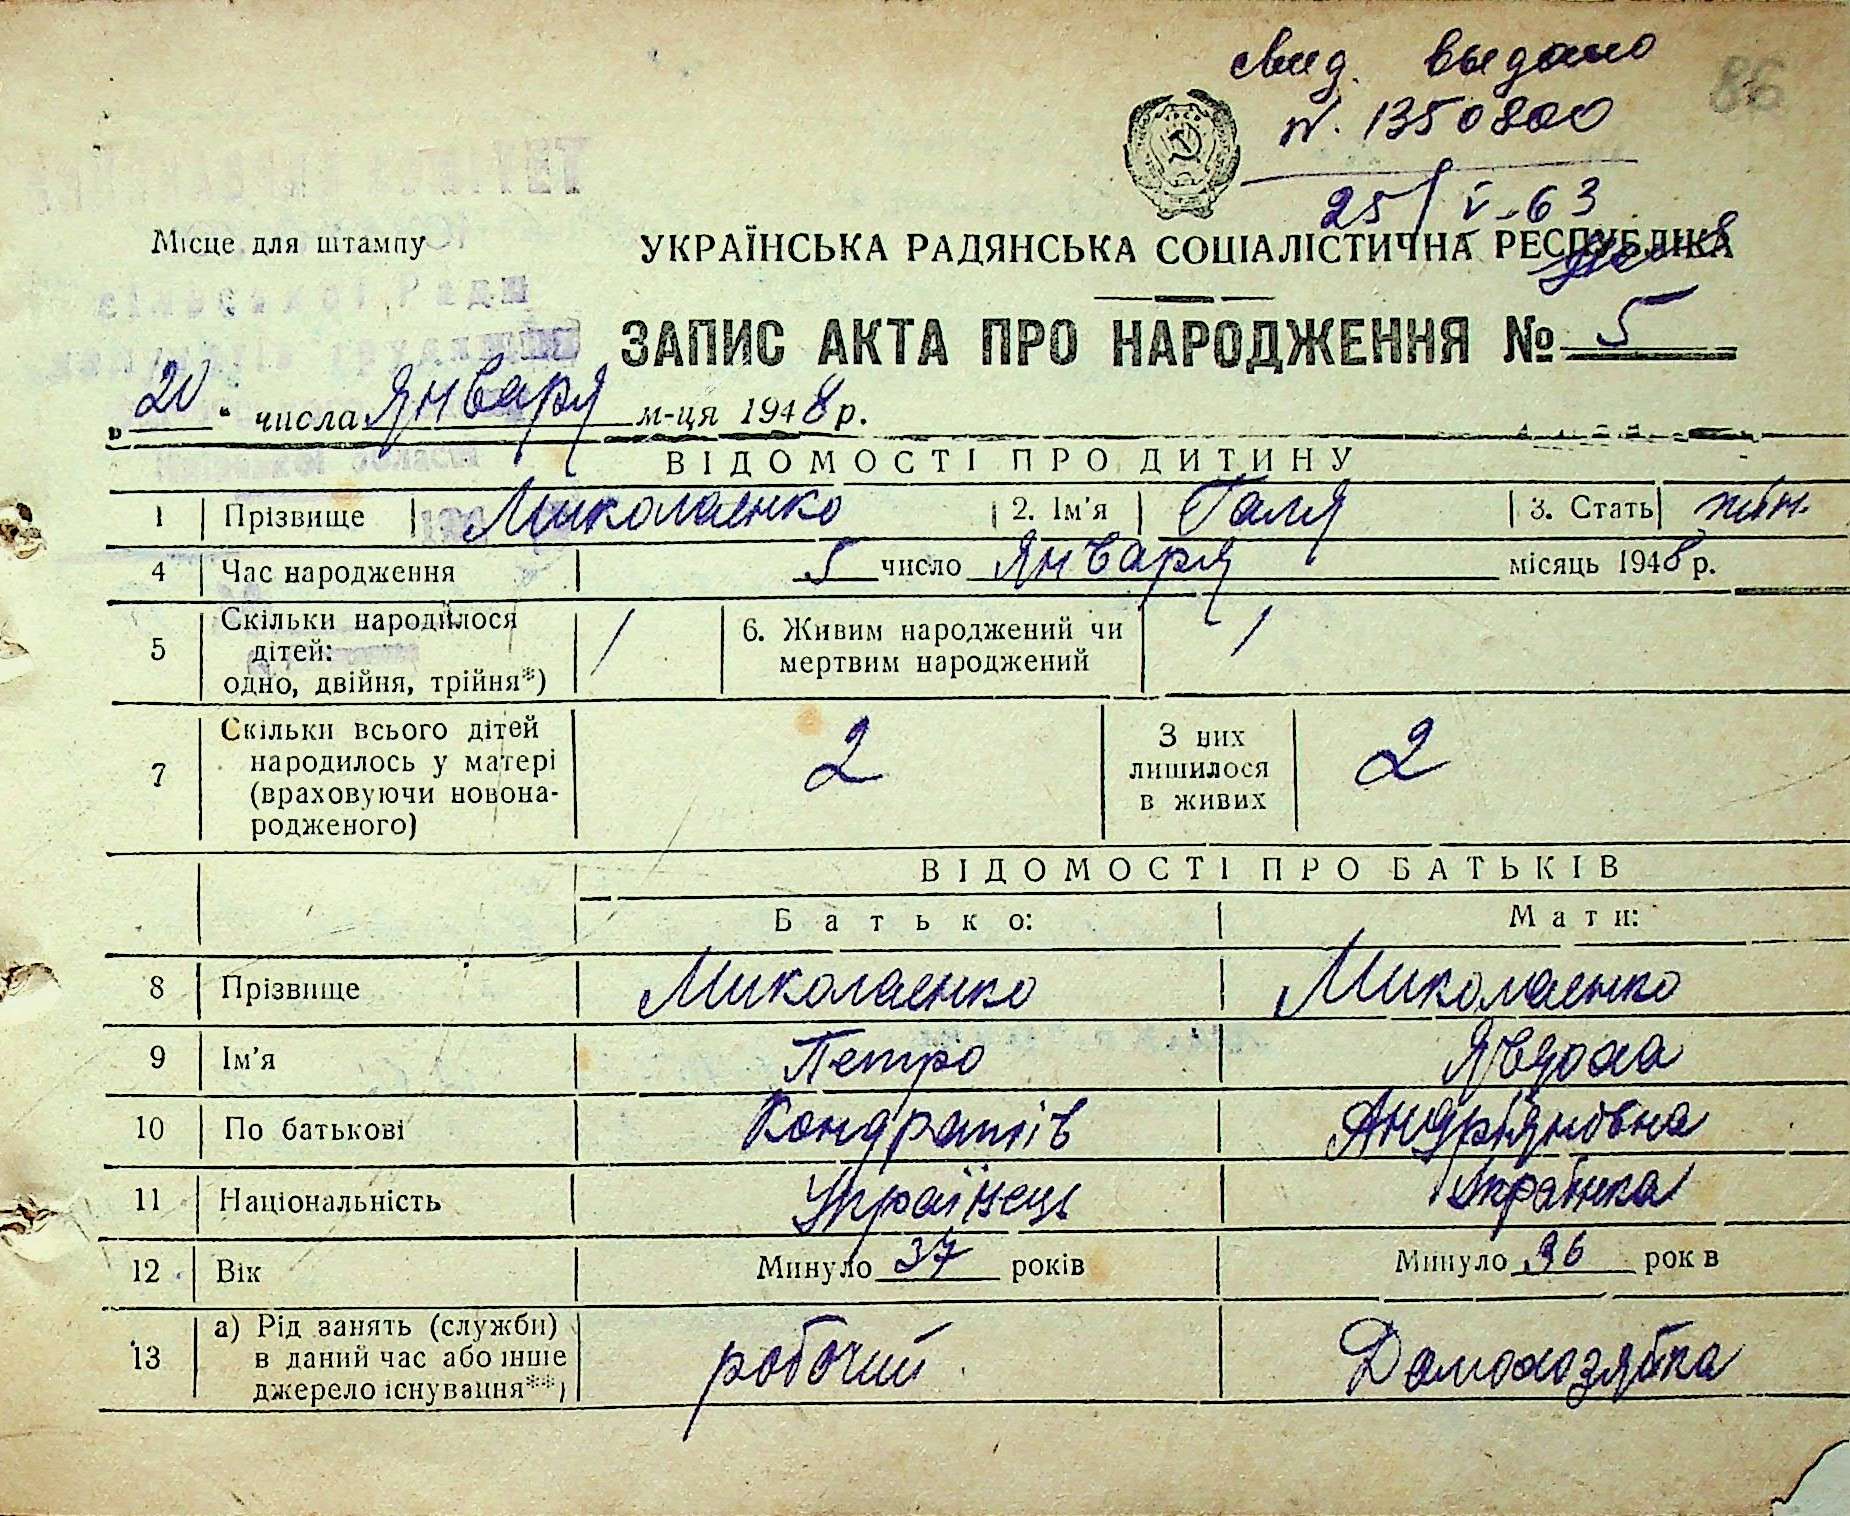 свид. выдано
86
N. 1350800
25/V-63
Місце для штампу
УКРАЇНСЬКА РАДЯНСЬКА СОЦІАЛІСТИЧНА РЕСПУБЛІКА
ЗАПИС АКТА ПРО НАРОДЖЕННЯ № 5
„20“ числа Января м-ця 1948 р.
ВІДОМОСТІ ПРО ДИТИНУ
1 Прізвище Миколаенко 2. Ім'я Галя 3. Стать жін.
4 Час народження 5 число Января місяць 1948 р.
5 Скільки народилося дітей: одно, двійня, трійня*) 1 6. Живим народжений чи мертвим народжений 1
7 Скільки всього дітей народилось у матері (враховуючи новонародженого) 2 З них лишилося в живих 2
ВІДОМОСТІ ПРО БАТЬКІВ
Батько: Мати:
8 Прізвище Миколаенко Миколаенко
9 Ім'я Петро Явдоха
10 По батькові Кондратів Андріяновна
11 Національність Українець Українка
12 Вік Минуло 37 років Минуло 36 рок в
13 а) Рід занять (служби) в даний час або інше джерело існування**) робочий Домохозяйка